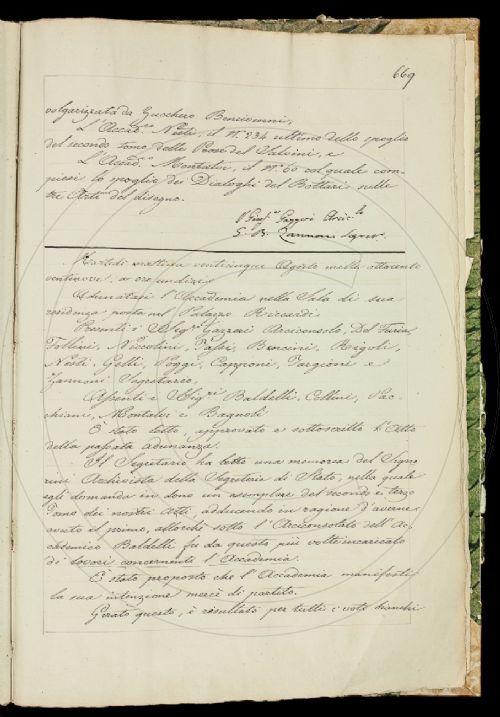 669
volgarizzata da Zucchero Bencivenni,
L'Accad.co Nesti, il N. 234 ultimo dello spoglio
del secondo tomo delle Prose del Salvini, e
L'Accad.co Montalvi, il N. 60 col quale com-
piesi lo spoglio dei Dialoghi del Bottari sulle
tre Arti del disegno.
Gazzeri Arcic.lo
G. B. Zannoni Segret.
Martedì mattina venticinque Agosto mille ottocento
ventinove, a ore undici.
Adunatasi l'Accademia nella Sala di sua
residenza posta nel Palazzo Riccardi.
Presenti i Sig.ri Gazzeri Arciconsolo, Del Furia,
Follini, Niccolini, Bencini, Rigoli,
Nesti, Gelli, Poggi, Capponi, Targioni e
Zannoni Segretario.
Assenti i Sig.ri Baldelli, Collini, Pac-
chiani, Montalvi e Bagnoli
È stato letto, approvato e sottoscritto l'Atto
della passata adunanza.
Il Segretario ha letto una memoria del Signo-
rini Archivista della Segreteria di Stato, nella quale
egli domanda in dono un esemplare del secondo e terzo
Tomo dei nostri Atti, adducendo in ragione d'averne
avuto il primo, allorchè sotto l'Arciconsolato dell'Ac-
cademico Baldelli fu da questo più volte incaricato
di lavori concernenti l'Accademia.
È stato proposto che l'Accademia manifesti
la sua intenzione mercè di partito.
Girato questo, è resultato per tutti i voti bianchi